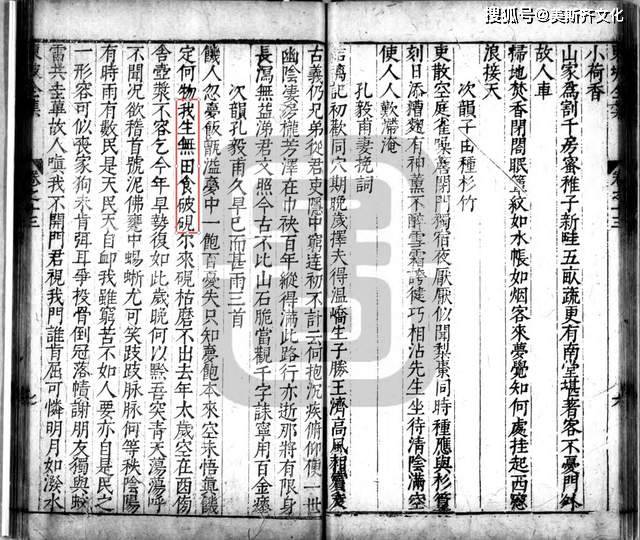 搜狐号@美斯齐文化
小荷香
山家為割千房蜜稚子新畦五畝蔬更有南堂堪著客不憂門外
故人車
掃地焚香閉閤眠簟紋如水帳如烟客來夢覺知何處挂起西窓
浪接天
次韻子由種杉竹
吏散空庭雀噪簷閉門獨宿夜厭厭似聞梨棗同時種應與杉篁
刻日添糟麴有神薰不醉雪霜誇健巧相沾先生坐待清陰滿空
使人人歎滯淹
孔毅甫妻挽詞
結褵記初歡同穴期晚歲擇夫得温嶠生子勝王濟高風相賓友
古義仍兄弟從君吏隱中窮達初不計云何抱沉疾俯仰便一世
幽陰凄房櫳芳澤在巾袂百年縱得滿此路行亦逝那將有限身
長瀉無益涕君文照今古不比山石脆當觀千字誄寧用百金瘞
次韻孔毅甫久旱已而甚雨三首
饑人忽夢飯甑溢夢中一飽百憂失只知夢飽本來空未悟真饑
定何物我生無田食破硯尓來硯枯磨不出去年太歲空在酉傍
舍壺漿不容乞今年旱勢復如此歲晚何以黔吾突青天蕩蕩呼
不聞况欲稽首號泥佛甕中蜥蜴尤可笑跂跂脉脉何等秩陰陽
有時雨有數民是天民天自卹我雖窮苦不如人要亦自是民之
一形容可似喪家狗未肯弭耳爭投骨倒冠落幘謝朋友獨與蚊
雷共圭蓽故人嗔我不開門君視我門誰肯屈可憐明月如潑水